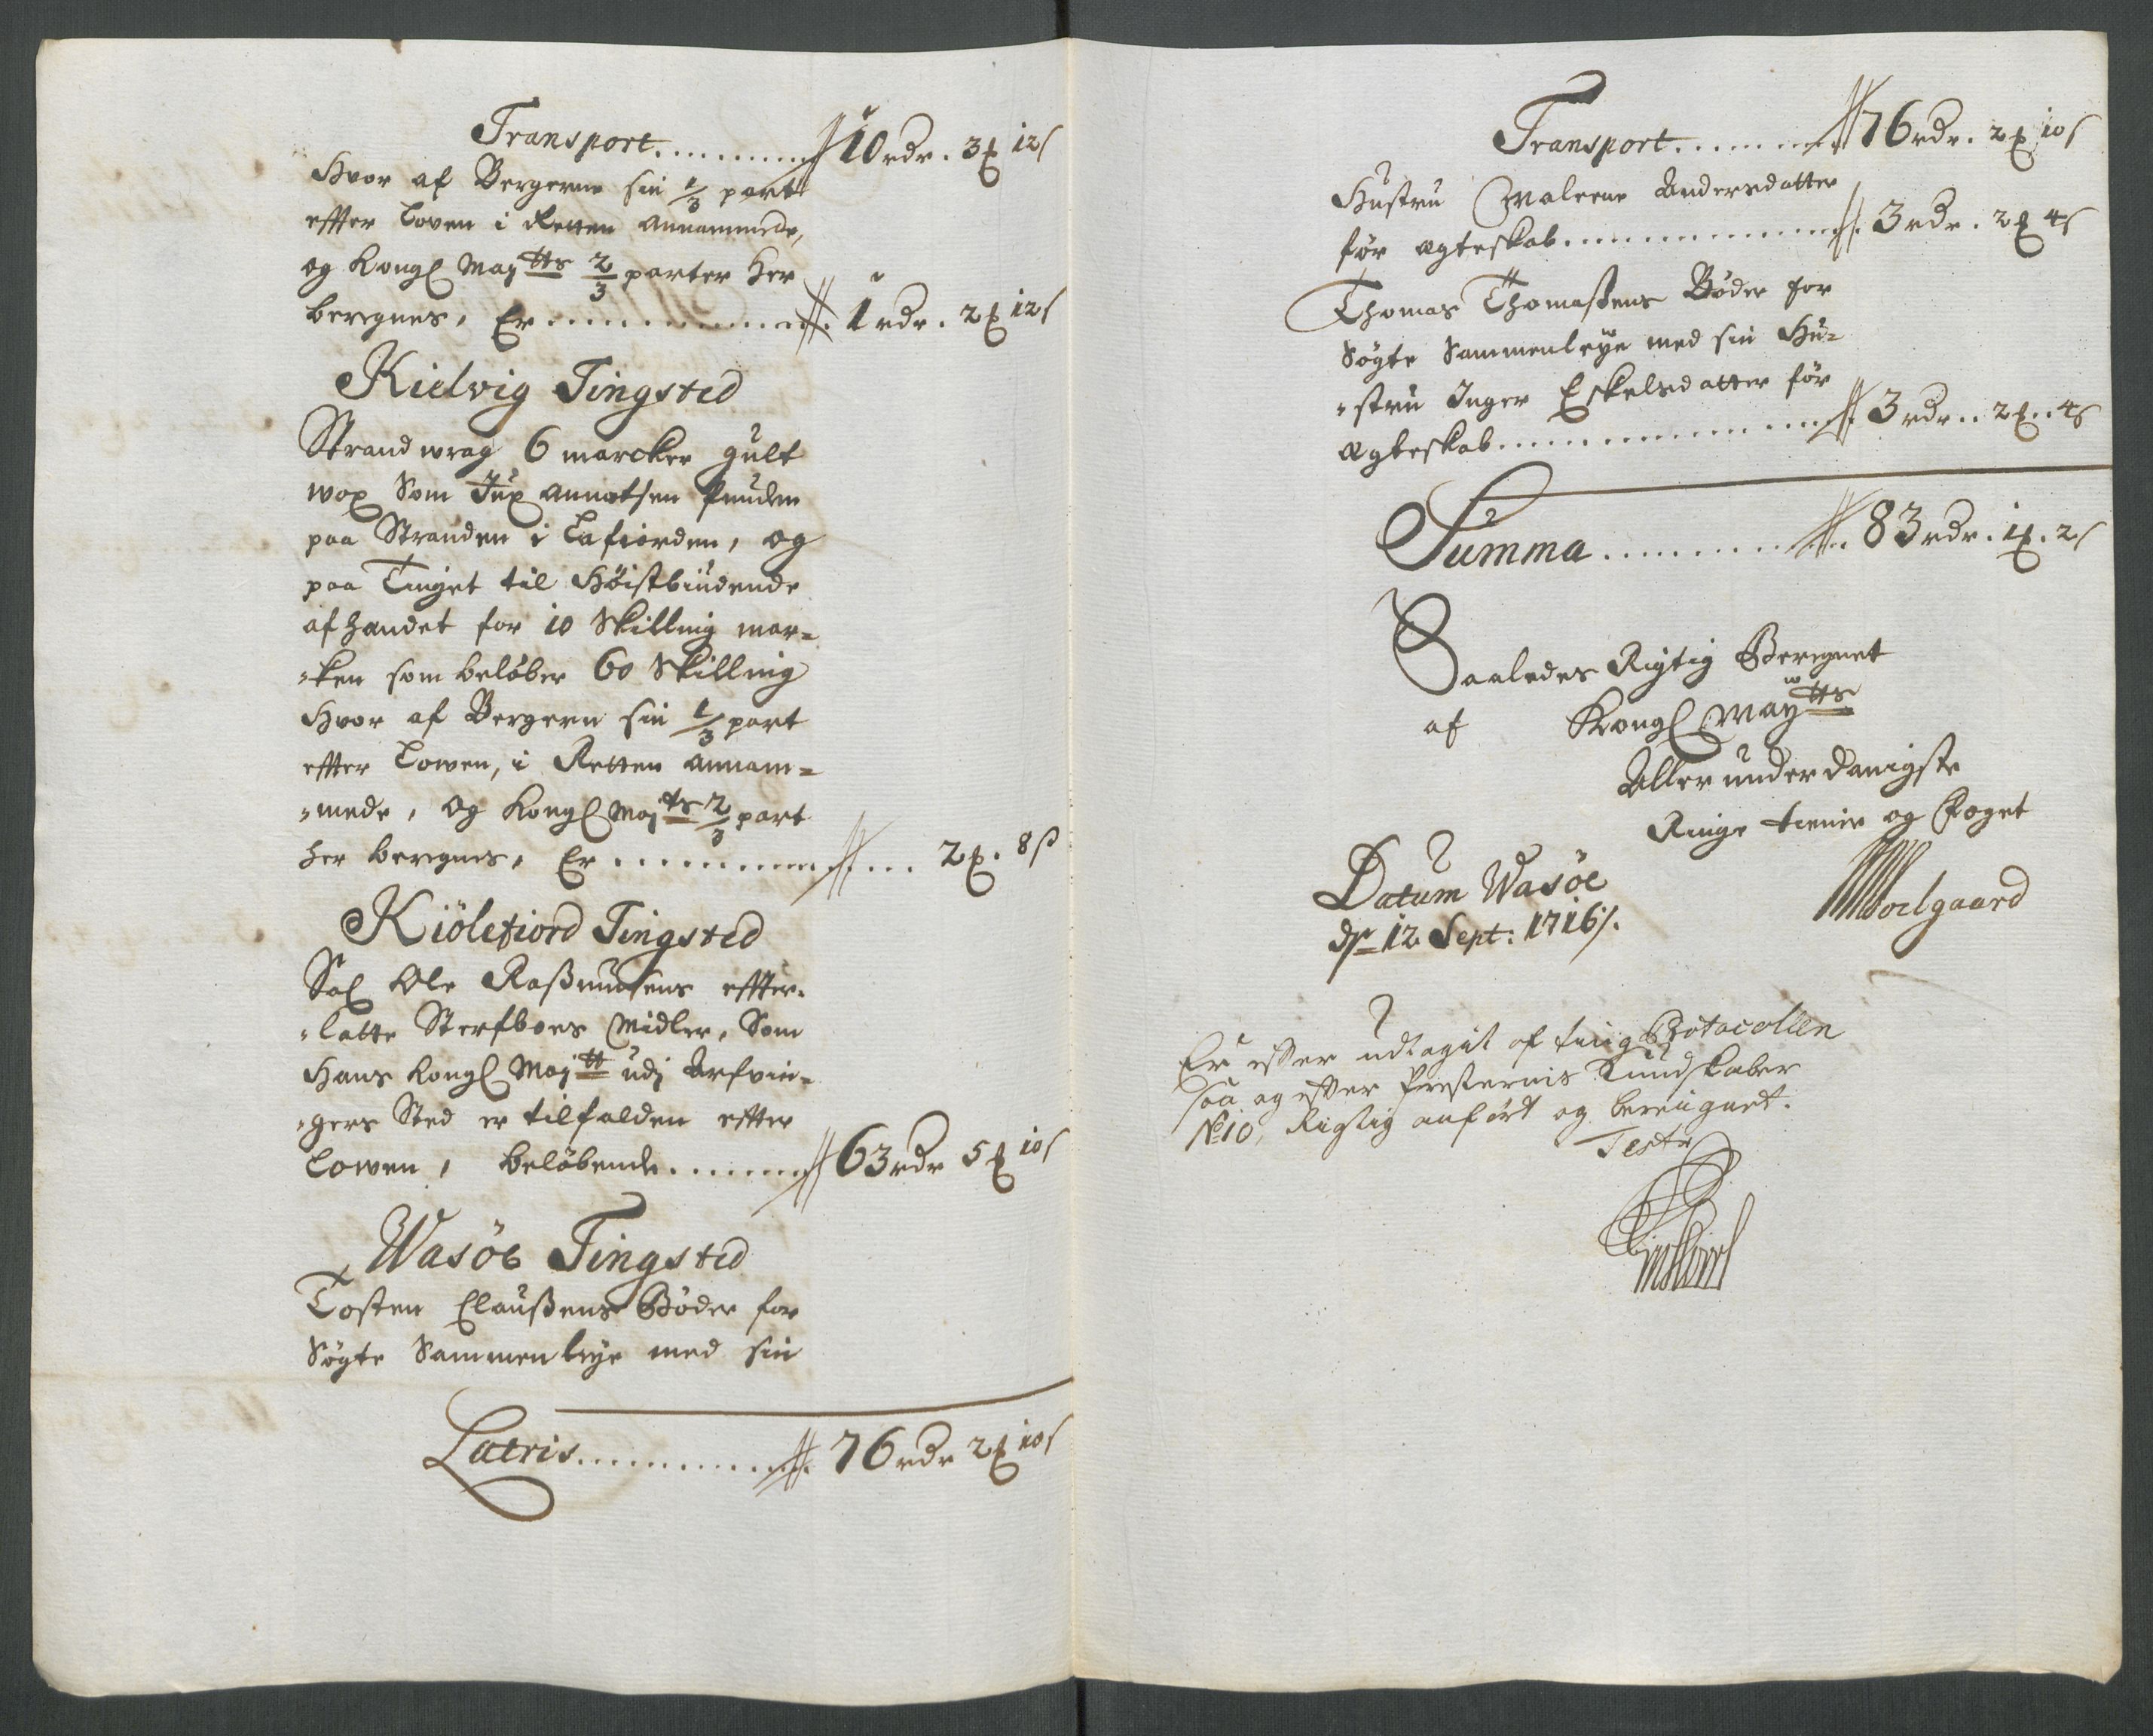 Transport.......... 10 rdr. 3 ₻ 12 s
Hvor af Bergerne sin 1/3 part
effter Loven i Retten annammede,
og Kongl Maytts 2/3 parter her
beregnes, Er .............. 1 rdr. 2 ₻ 12 s
Kielvig Tingsted
Strandwrag 6 marcker gult
wox Som annatsen funden
paa Stranden i Lafiorden, og
paa Tinget til Høistbiudende
afhandet for 10 Skilling mar-
ken som beløber 60 Skilling
Hvor af Bergeren sin 1/3 part
effter Lowen, i Retten annam-
mede, og Kongl Mayts 2/3 part
her beregnes, Er ............... 2 ₻. 8 s
Kiölefiord Tingsted
Sal Ole Rasmusens effter-
latte Sterfboes Midler, Som
Hans Kongl Maytt udj Arfvin-
gers Sted er tilfalden effter
Lowen, beløbende....... 63 rdr 5 ₻ 10 s
Wasöe Tingsted
Tosten Claußens Bøder for
Søgte Sammenleye med sin
Latris............ 76 rdr 2 ₻ 10 s
Transport........ 76 rdr. 2 ₻ 10 s
Hustru Maleene Andersdatter
før ægteskab............... 3 rdr. 2 ₻ 4 s
Thomas Thomaßens Bøder for
Søgte Sammenleye med sin Hu-
stru Inger Eskelsdatter før
ægteskab................. 3 rdr.. 2 ₻.. 4 s
Summa.......... 83 rdr. 1 ₻. 2 s
Saaledes Rigtig Beregnet
af Kongl Maytts
Allerunderdanigste
Ringe tiener og Foget
Datum Wasöe
d 12 Sept: 1716/.
Soelgaard
Er efter udtagit af ting Protocollen
saa og efter Presternis Kundskaber
No 10, Rigtig anført og bereignet.
Teste